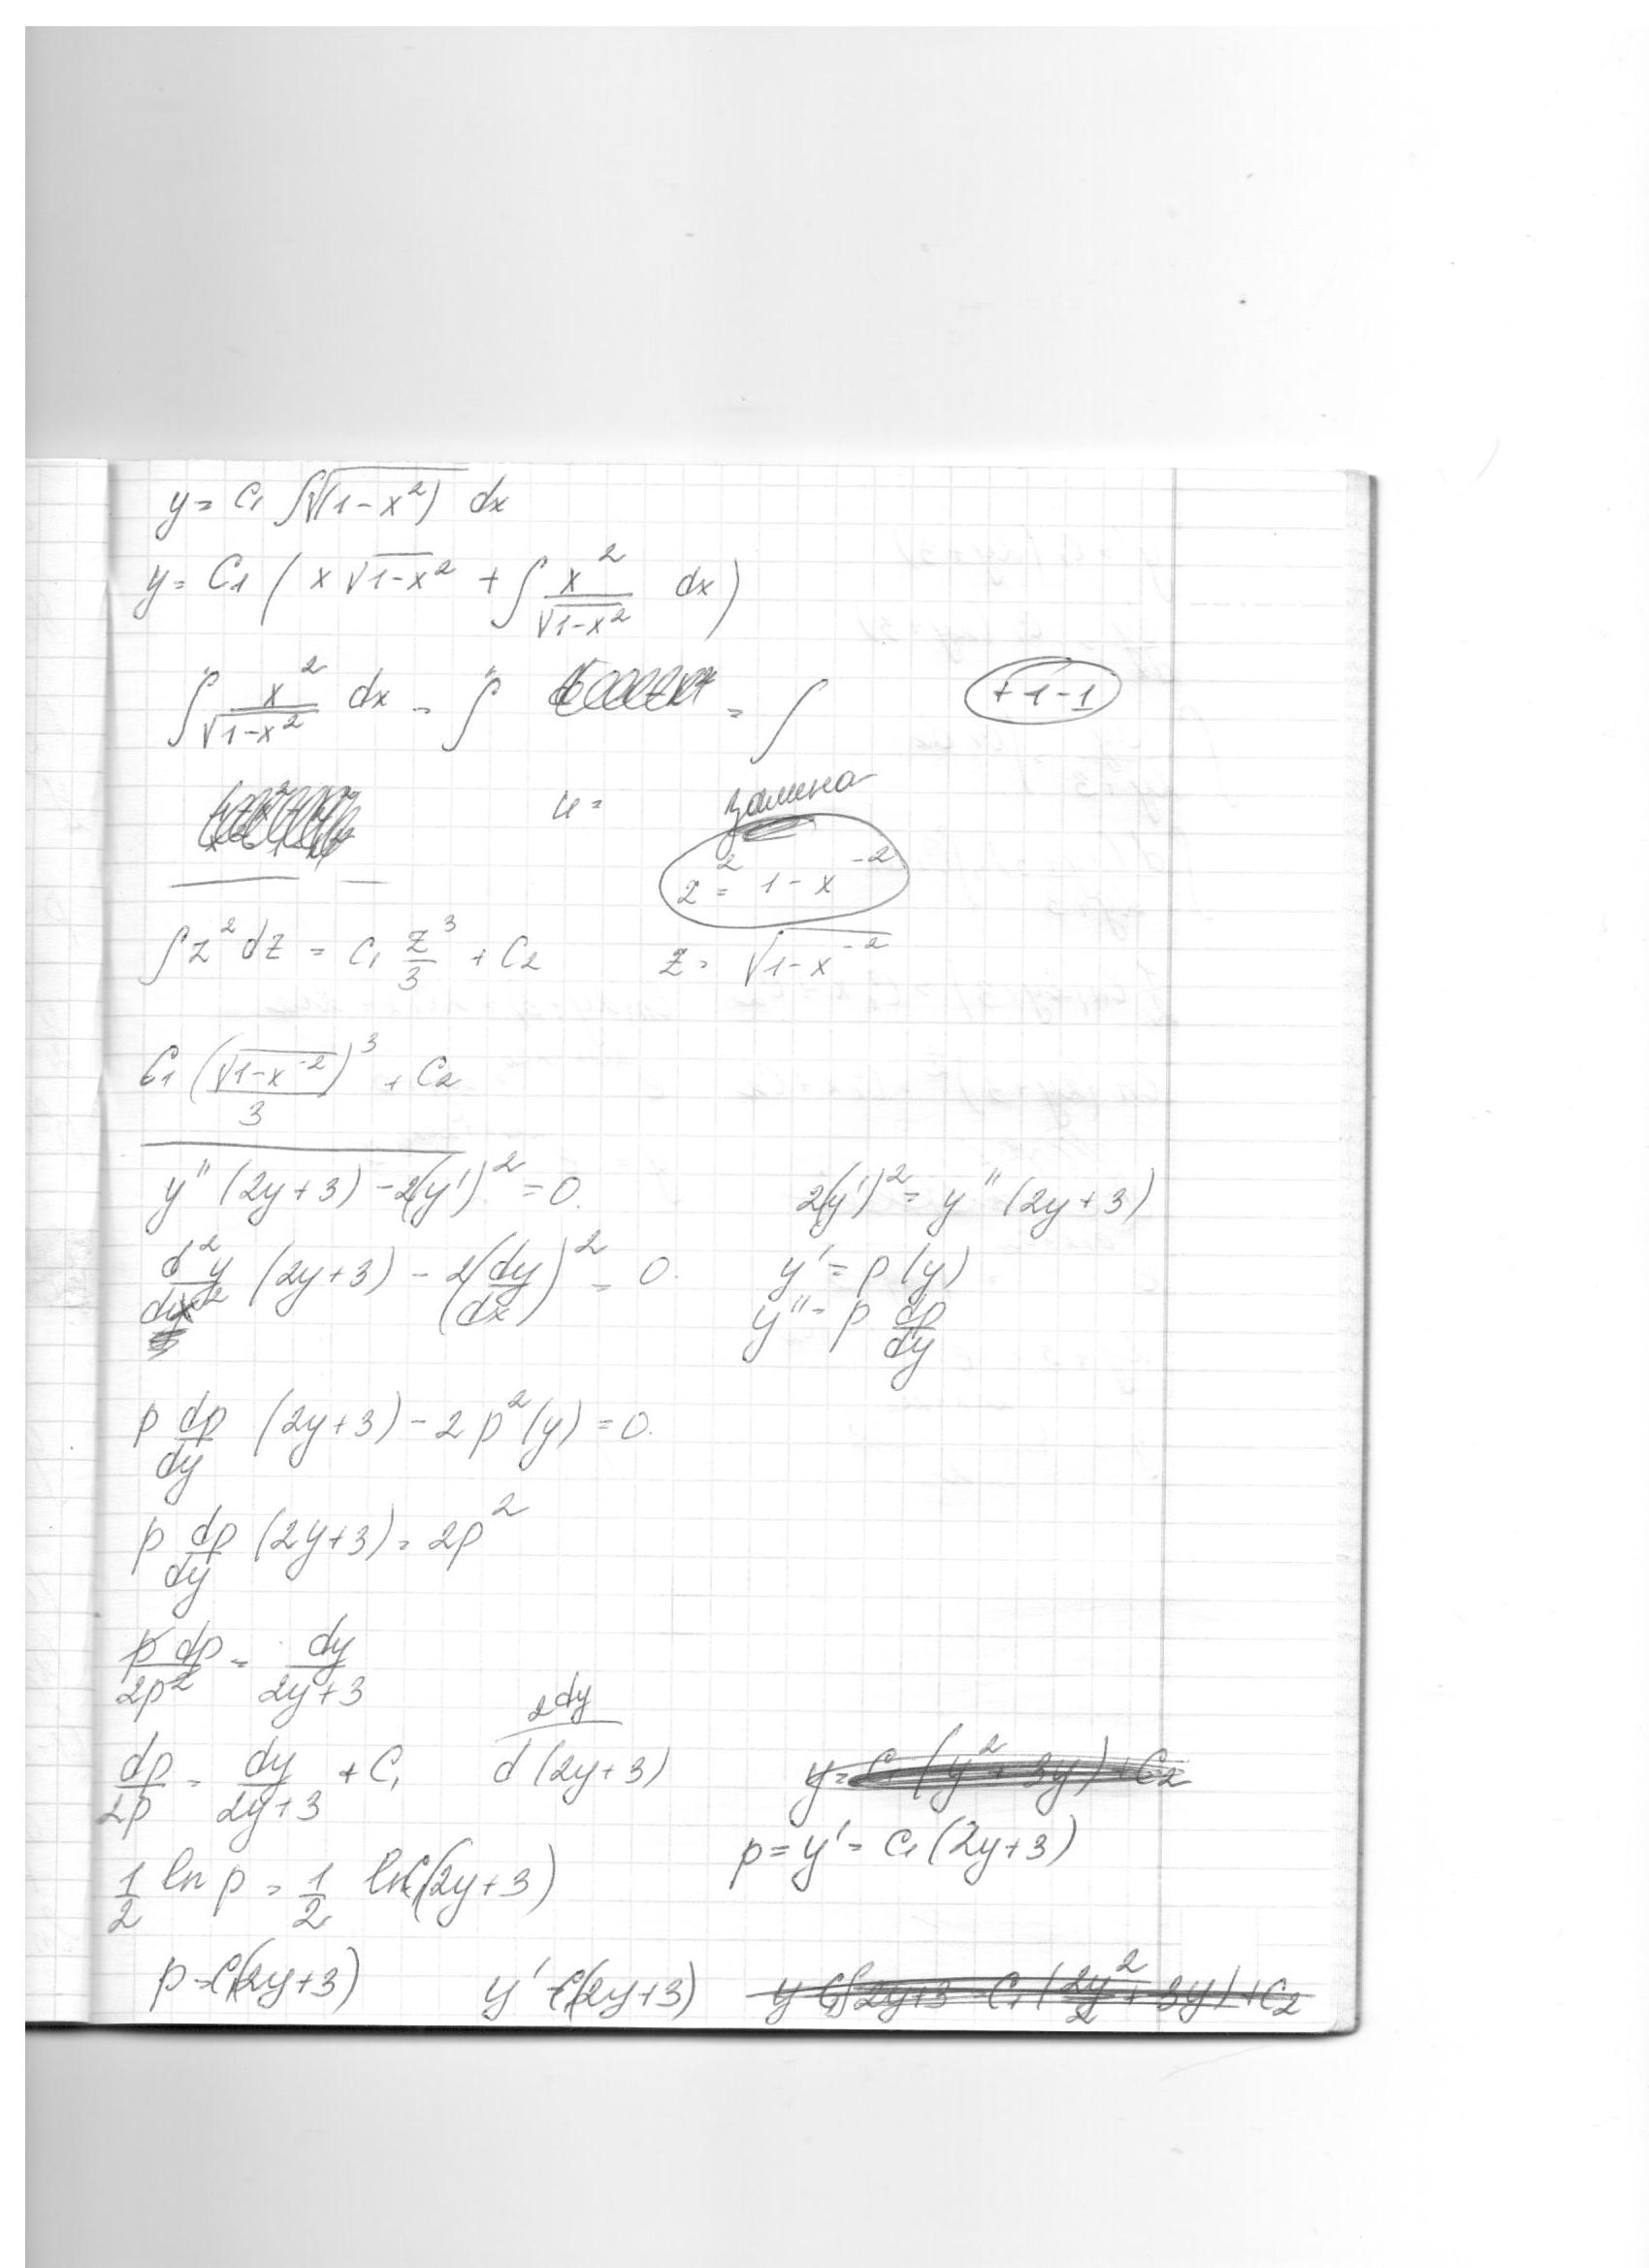 y = C₁ ∫√(1-x²) dx
y = C₁ ( x √1-x² + ∫ x²/√1-x² dx )
∫ x²/√1-x² dx = ∫ = ∫ +1-1
u = замена
z² = 1-x⁻²
∫z²dz = C₁ z³/3 + C₂ z = √1-x⁻²
C₁ (√1-x⁻²)³/3 + C₂
y'' (2y+3) - 2(y')² = 0. 2(y')² = y'' (2y+3)
d²y/dx² (2y+3) - 2(dy/dx)² = 0. y' = p(y)
y'' = p dp/dy
p dp/dy (2y+3) - 2p²(y) = 0.
p dp/dy (2y+3) = 2p²
p dp/2p² = dy/2y+3
dp/2p = dy/2y+3 + C₁ 2dy/d(2y+3) y = C₁(y²+3y)+C₂
p = y' = C₁(2y+3)
1/2 ln p = 1/2 ln C₁(2y+3)
p = C₁(2y+3) y' = C₁(2y+3) y = C₁∫2y+3 = C₁(2y²/2+3y)+C₂